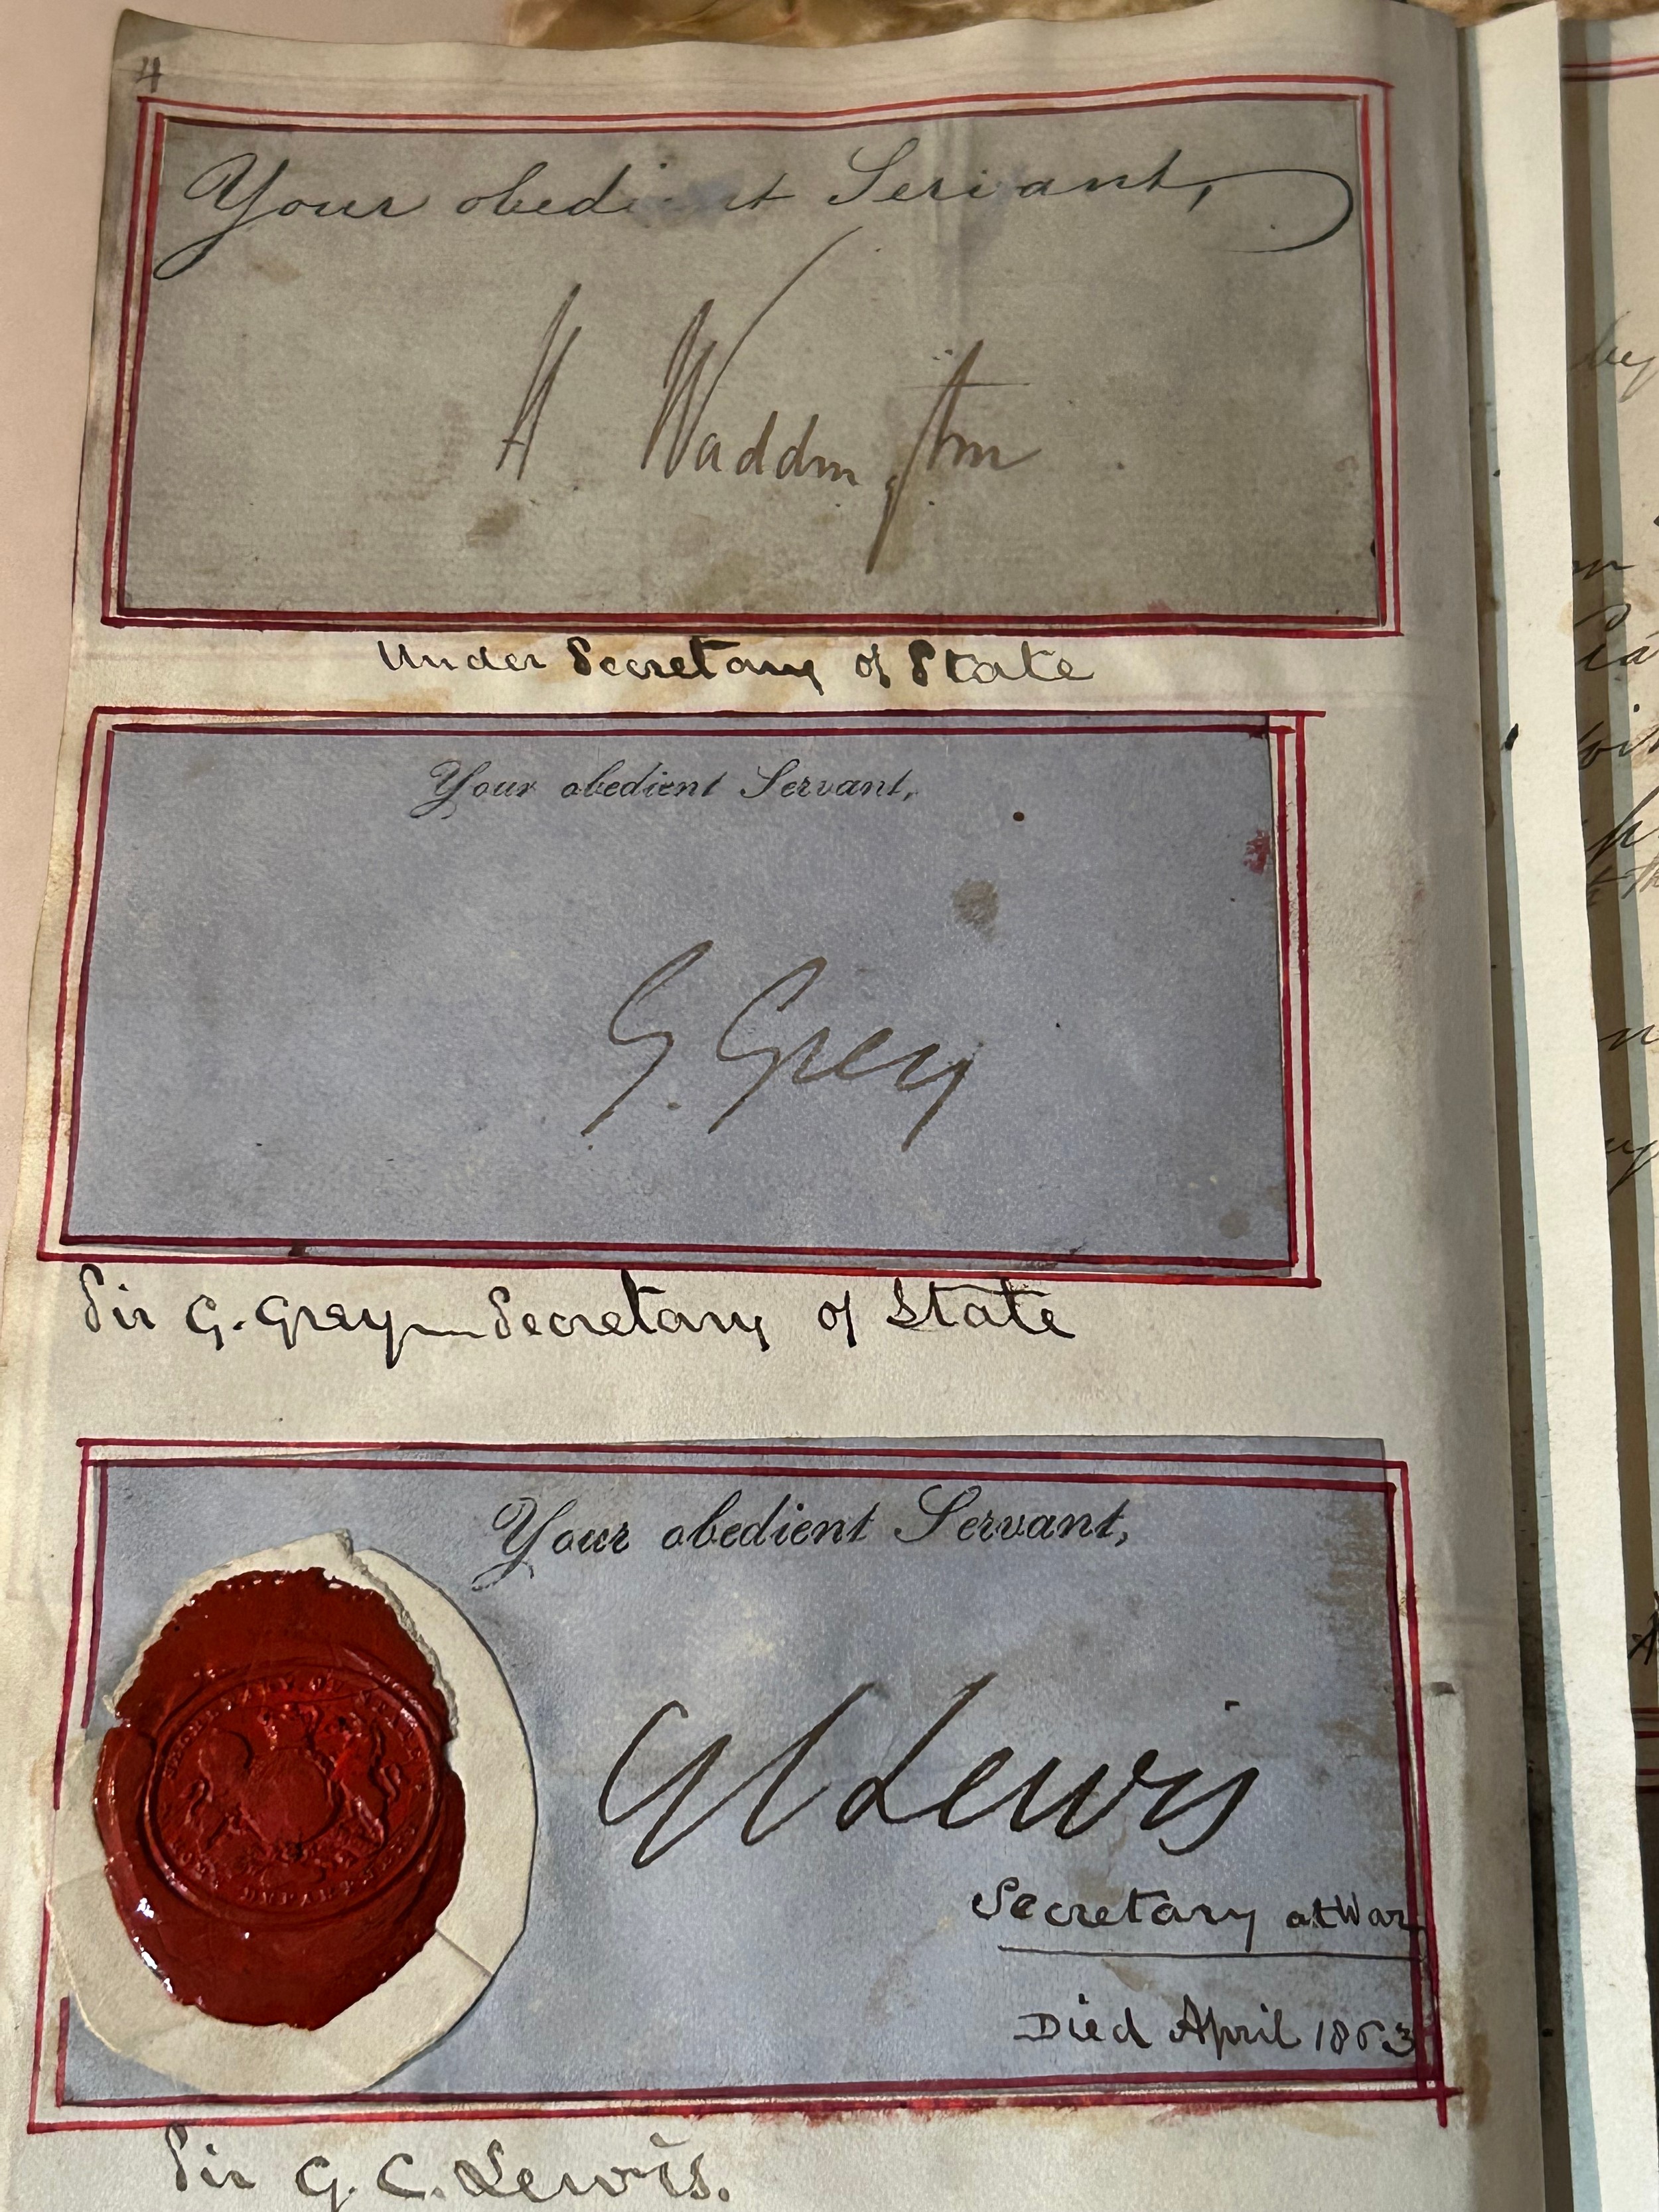 4
Your obedient Servant,
H Waddington
Under Secretary of State
Your obedient Servant,
G. Grey
Sir G. Grey — Secretary of State
Your obedient Servant,
G C Lewis
Secretary at War
Died April 1863
Sir G. C. Lewis.